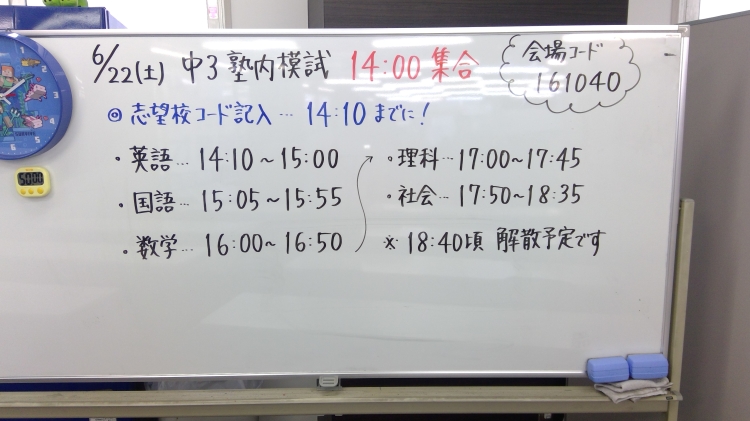 6/22(土) 中3 塾内模試 14:00 集合
会場コード
161040
◎ 志望校コード記入… 14:10 までに!
・英語… 14:10～15:00
・国語… 15:05～15:55
・数学… 16:00～16:50
・理科… 17:00～17:45
・社会… 17:50～18:35
※ 18:40頃 解散予定です